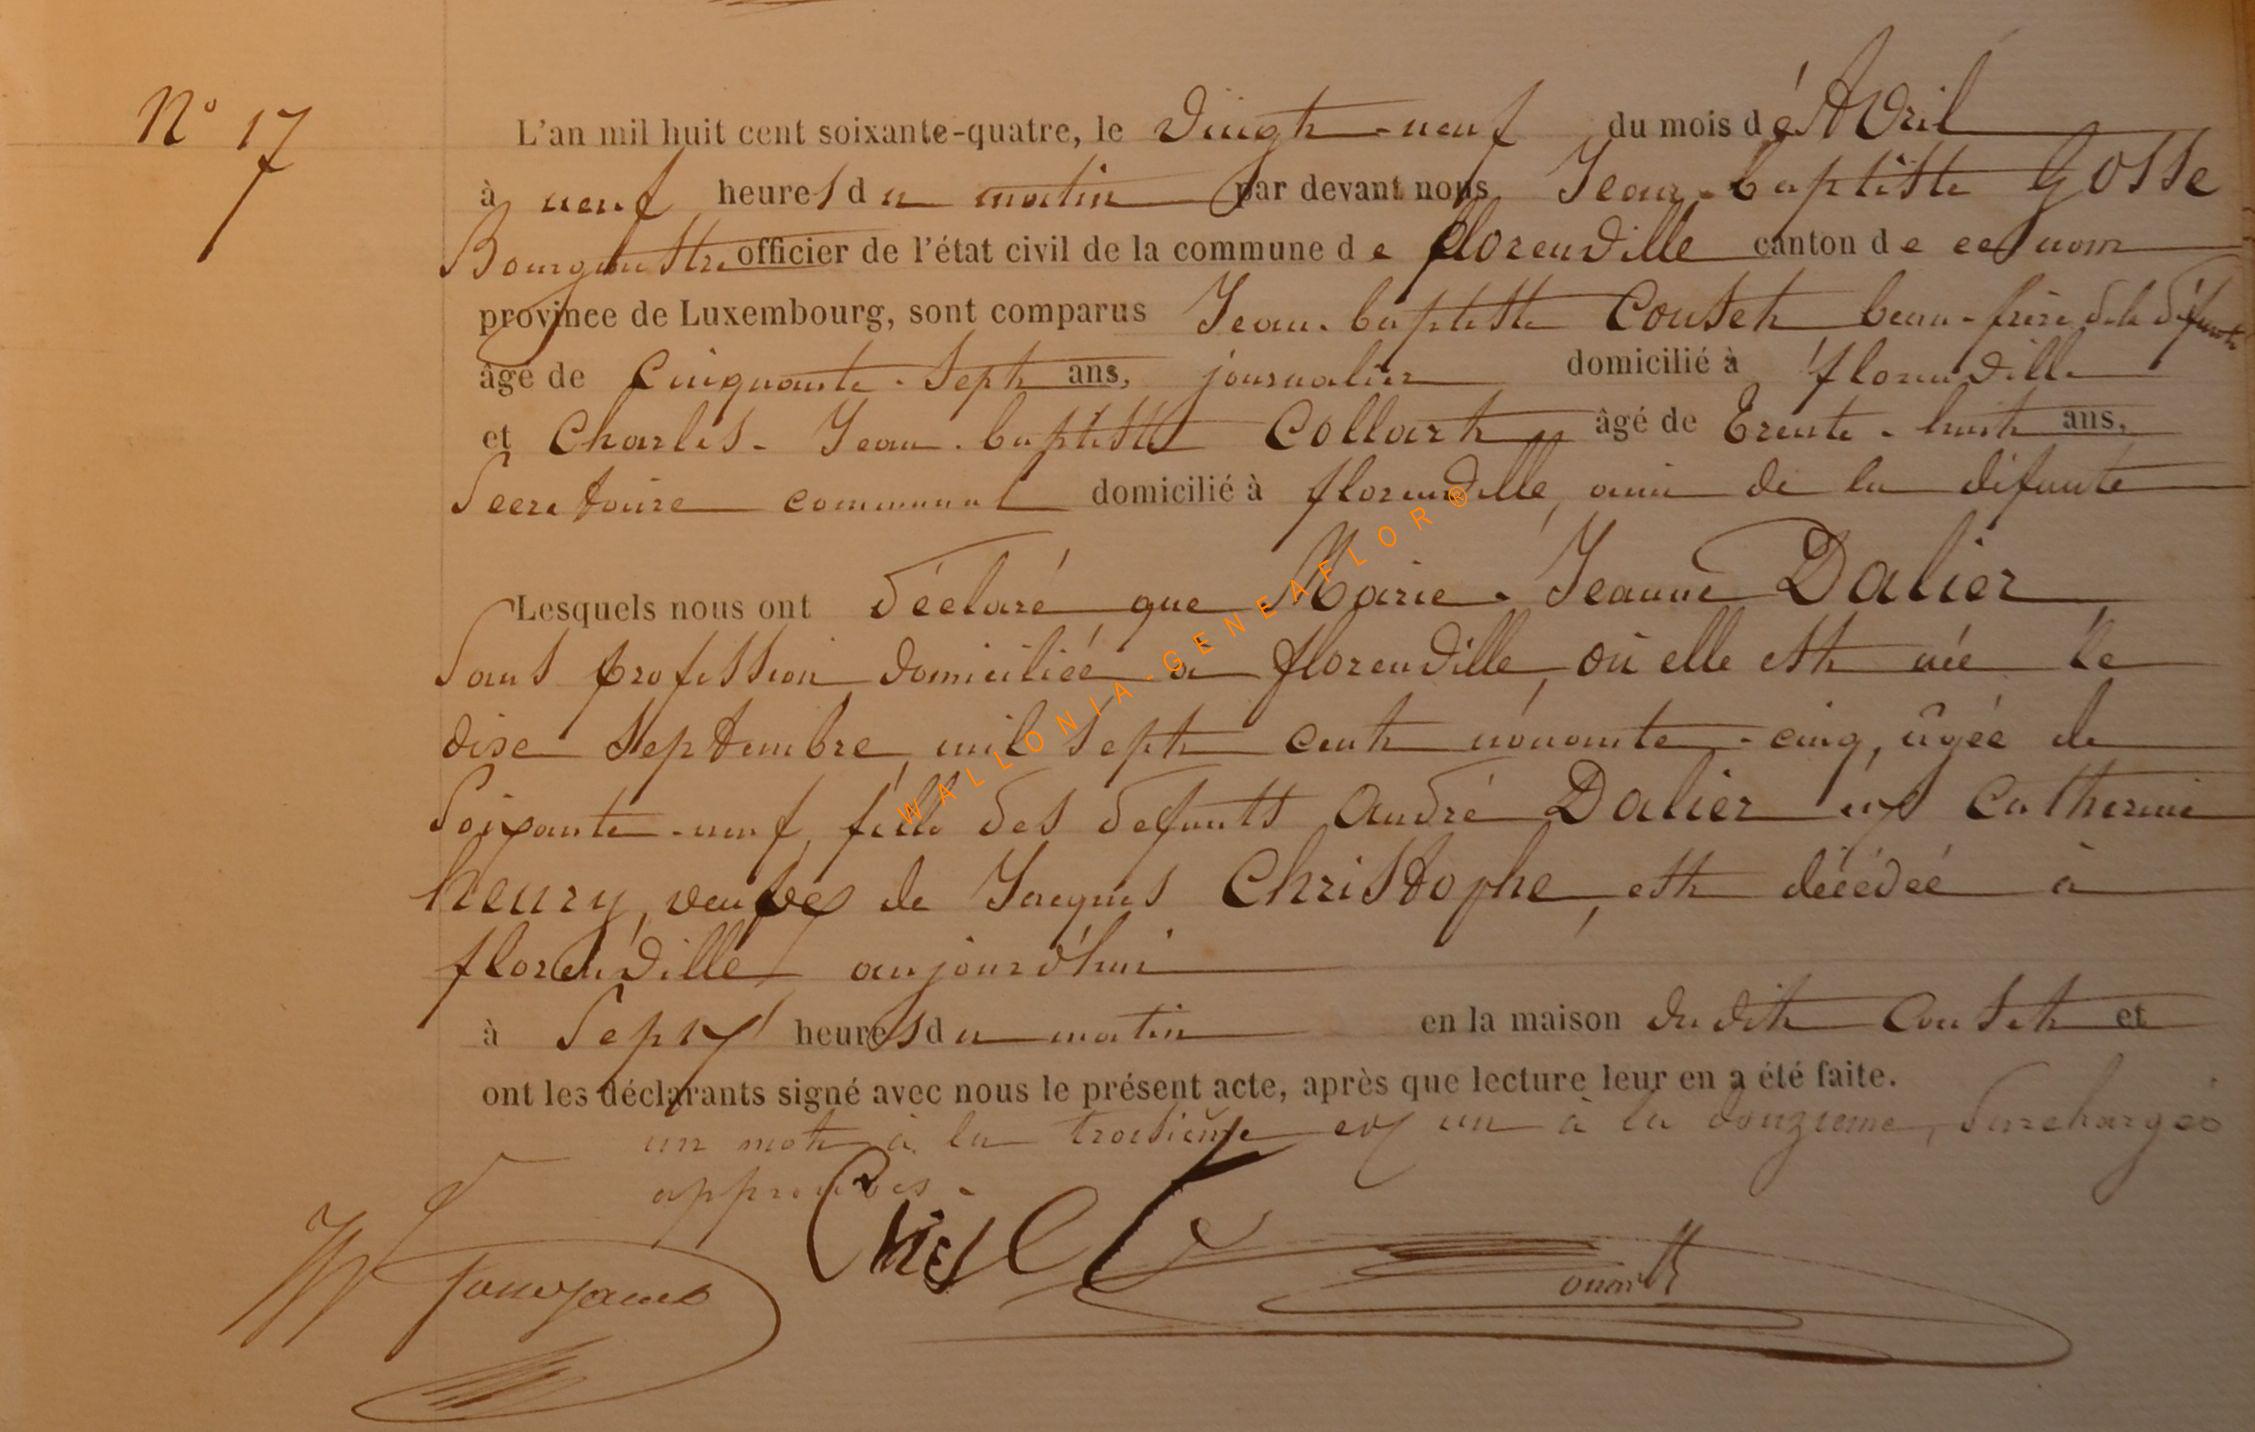 N° 17
L'an mil huit cent soixante-quatre, le vingt-neuf du mois d'Avril
à neuf heures du matin par devant nous Jean-baptiste Gosse
Bourgmestre officier de l'état civil de la commune de florenville canton de ce nom
province de Luxembourg, sont comparus Jean-baptiste Couset beau-frère de la défunte
âgé de Cinquante-Sept ans, journalier domicilié à florenville
et Charles-Jean-baptiste Collart âgé de Trente-huit ans,
Secretaire communal domicilié à florenville, ami de la défunte
Lesquels nous ont déclaré que Marie-Jeanne Dalier
Sans profession domiciliée à florenville, où elle est née le
dise Septembre mil sept cent nonante-cinq, âgée de
Soixante-neuf, fille des défunts André Dalier et Catherine
henry, veuve de Jacques Christophe, est décédée à
florenville aujourd'hui
à Sept heures du matin en la maison dudit Couset et
ont les déclarants signé avec nous le présent acte, après que lecture leur en a été faite.
un mot à la troisième et un à la douzième, Surchargés
approuvés.
WALLONIA-GENEAFLOR®